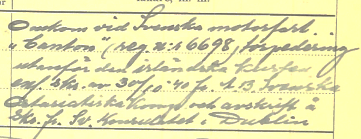 Omkom vid Svenska motorfart.
"Canton", reg. nr 6698, torpedering
utanför den irländska kusten
enl. skr. av 30/10 40 fr. t.f. Svenska
Generalkons. och avskrift å
skr. fr. Sv. Konsulatet i Dublin